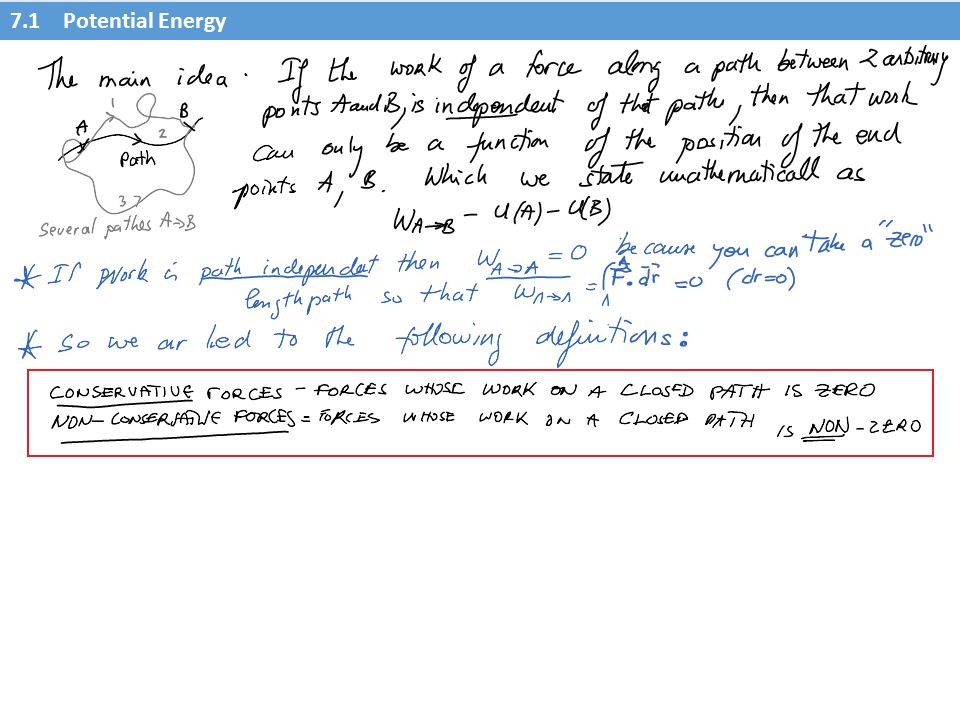 7.1 Potential Energy
The main idea. If the work of a force along a path between 2 arbitrary
points A and B, is independent of that path, then that work
can only be a function of the position of the end
points A, B. Which we state mathematicall as
W A→B = U(A) - U(B)
1
A
B
2
Path
3
Several pathes A→B
* If work is path independent then W A→A = 0 because you can take a "zero"
length path so that W A→A = ∫ A A F⃗ · dr⃗ = 0 (dr=0)
* So we ar led to the following definitions:
CONSERVATIVE FORCES = FORCES WHOSE WORK ON A CLOSED PATH IS ZERO
NON-CONSERVATIVE FORCES = FORCES WHOSE WORK ON A CLOSED PATH IS NON-ZERO